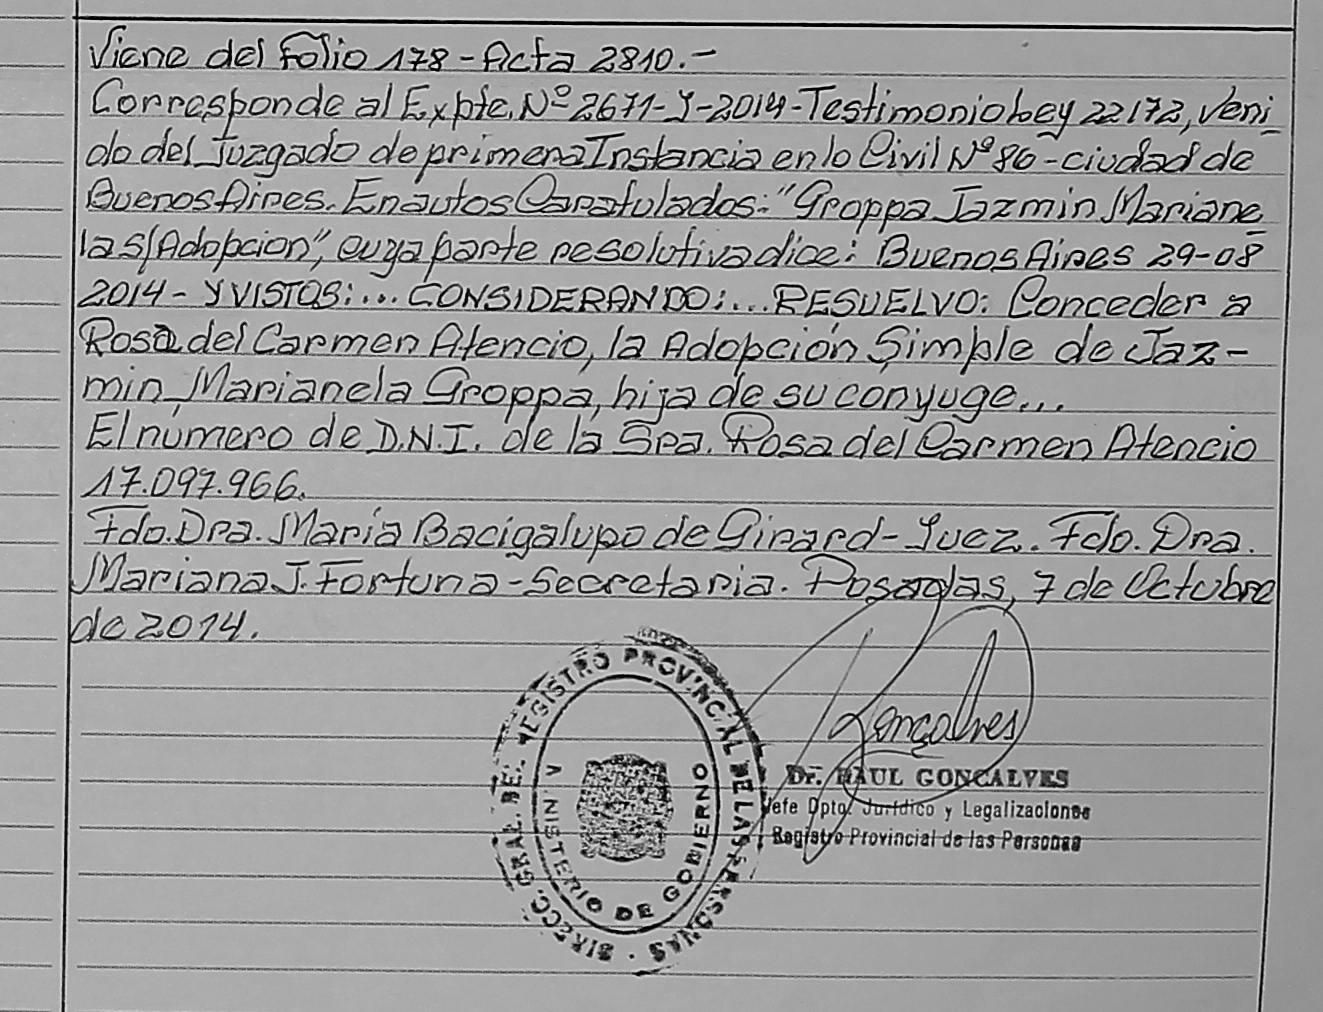 Viene del Folio 178 - Acta 2810.-
Corresponde al Expte. Nº 2671-Y-2014-Testimonio Ley 22172, veni_
do del Juzgado de primera Instancia en lo Civil Nº 86 - ciudad de
Buenos Aires. En autos Caratulados: "Groppa Jazmin Mariane_
la s/Adopcion", cuya parte resolutiva dice: Buenos Aires 29-08
2014 - Y VISTOS:... CONSIDERANDO:... RESUELVO: Conceder a
Rosa del Carmen Atencio, la Adopción Simple de Jaz-
min Marianela Groppa, hija de su conyuge...
El número de D.N.I. de la Sra. Rosa del Carmen Atencio
17.097.966.
Fdo. Dra. María Bacigalupo de Girard - Juez. Fdo. Dra.
Mariana J. Fortuna - Secretaria. Posadas, 7 de Octubre
de 2014.
DIRECC. GRAL. DEL REGISTRO PROVINCIAL DE LAS PERSONAS
MINISTERIO DE GOBIERNO
Gonçalves
Dr. RAUL GONCALVES
Jefe Dpto. Jurídico y Legalizaciones
Registro Provincial de las Personas